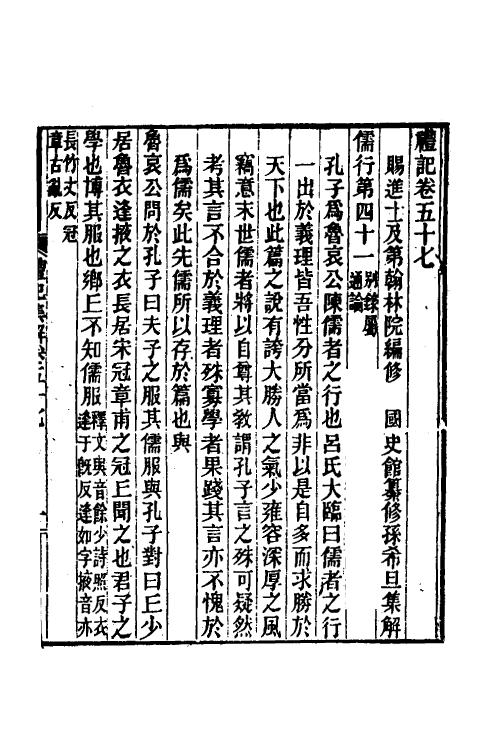 禮記卷五十七
賜進士及第翰林院編修　國史館纂修孫希旦集解
儒行第四十一別錄屬通論
孔子爲魯哀公陳儒者之行也呂氏大臨曰儒者之行
一出於義理皆吾性分所當爲非以是自多而求勝於
天下也此篇之說有誇大勝人之氣少雍容深厚之風
竊意末世儒者將以自尊其教謂孔子言之殊可疑然
考其言不合於義理者殊寡學者果踐其言亦不愧於
爲儒矣此先儒所以存於篇也與
魯哀公問於孔子曰夫子之服其儒服與孔子對曰丘少
居魯衣逢掖之衣長居宋冠章甫之冠丘聞之也君子之
學也博其服也鄉丘不知儒服釋文與音餘少詩照反衣逢于旣反逢如字掖音亦
長竹丈反冠章古亂反
禮記集解卷五十七　一